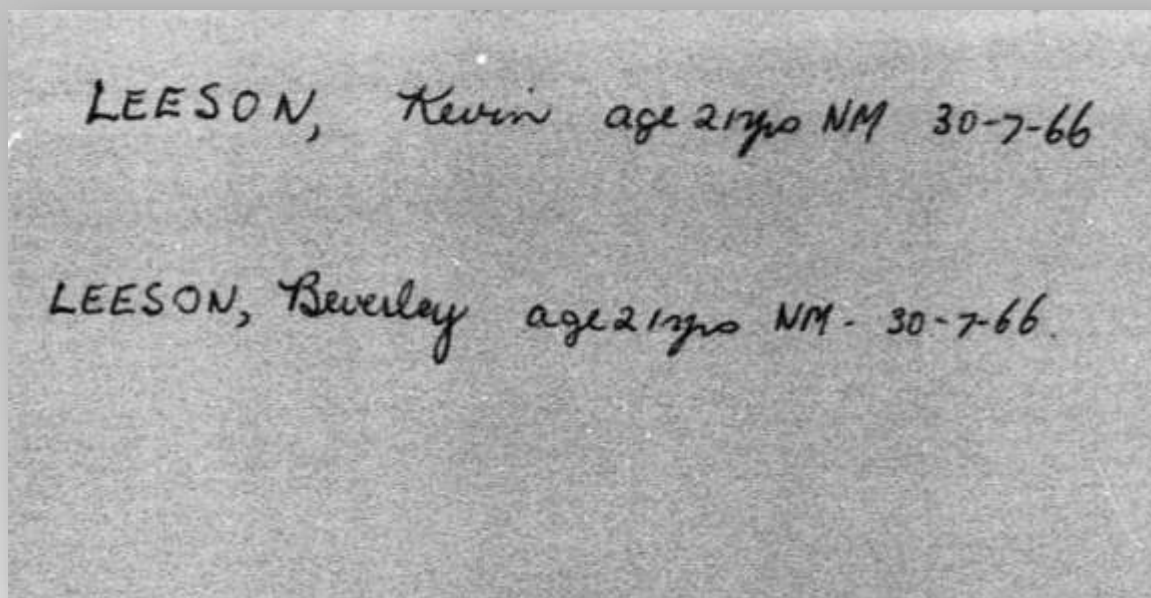 LEESON, Kevin age 21yrs NM 30-7-66
LEESON, Beverley age 21yrs NM - 30-7-66.